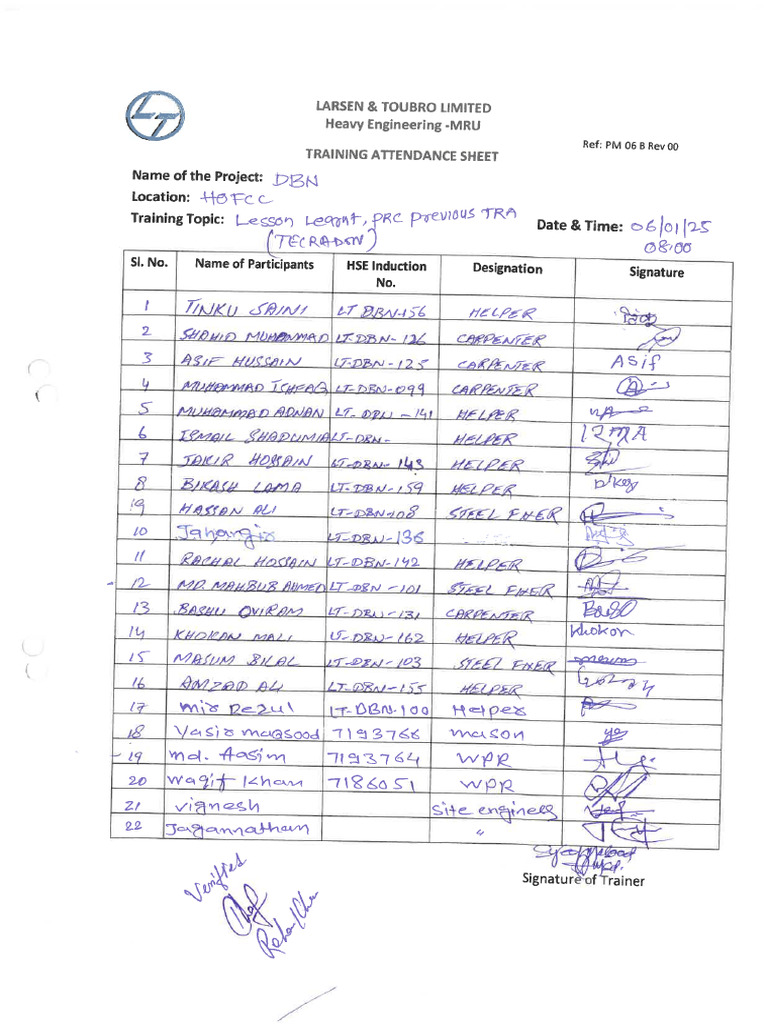 LT
LARSEN & TOUBRO LIMITED
Heavy Engineering -MRU
Ref: PM 06 B Rev 00
TRAINING ATTENDANCE SHEET
Name of the Project: DBN
Location: HOFCC
Training Topic: Lesson Learnt, PRC previous TRA
(TECRADON)
Date & Time: 06/01/25
08:00
Sl. No. Name of Participants HSE Induction No. Designation Signature
1 TINKU SAINI LT DBN-156 HELPER
2 SHAHID MUHAMMAD LT-DBN-126 CARPENTER
3 ASIF HUSSAIN LT-DBN-125 CARPENTER Asif
4 MUHAMMAD ISHFAQ LT-DBN-099 CARPENTER
5 MUHAMMAD ADNAN LT-DBN-141 HELPER
6 ISMAIL SHADUMIA LT-DBN- HELPER IZMA
7 JAKIR HOSSAIN LT-DBN-143 HELPER
8 BIKASH LAMA LT-DBN-159 HELPER
9 HASSAN ALI LT-DBN-108 STEEL FIXER
10 Jahangir LT-DBN-136
11 RACHAL HOSSAIN LT-DBN-142 HELPER
12 MD. MAHBUB AHMED LT DBN-101 STEEL FIXER
13 BASHU OVIRAM LT-DBN-131 CARPENTER
14 KHOKON MALI LT-DBN-162 HELPER Khokon
15 MASUM BILAL LT-DBN-103 STEEL FIXER
16 AMZAD ALI LT-DBN-155 HELPER
17 mir Rezul LT-DBN-100 Helper
18 Yasir maqsood 7193766 mason
19 md. Aasim 7193764 WPR
20 waqif khan 7186051 WPR
21 vignesh site engineer
22 Jagannathan "
Signature of Trainer
Verified